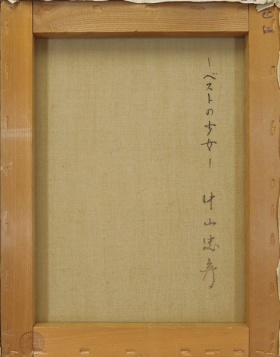 －ベストの少女－
中山忠彦